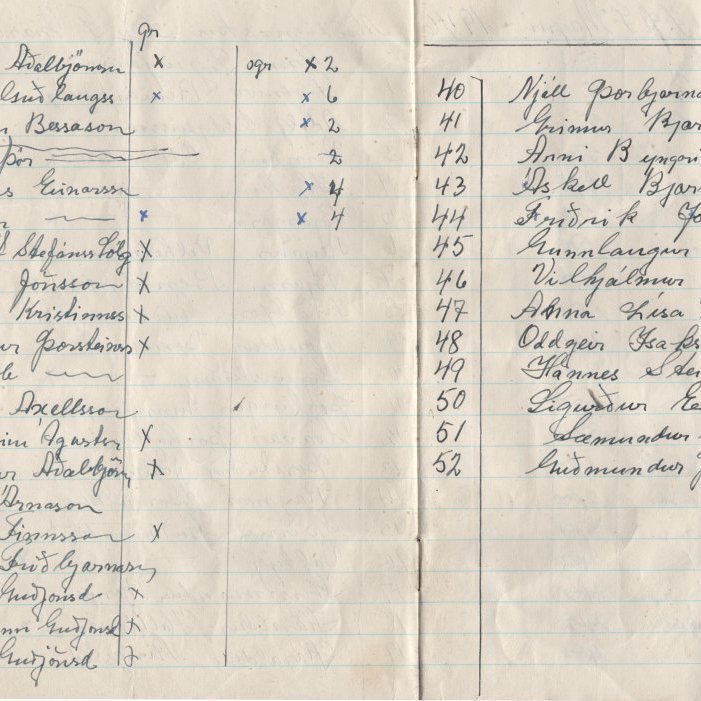 gr
Aðalbjörnsn x ogr x 2
x x 6
Bessason x 2
Þór 2
s Einarssn x 4
x x 4
Stefánss Sólg x
Jónsson x
Kristinnss x
ur Þorsteinss x
Axellsson
Ágústsn x
ur Aðalbjörn x
Árnason
Finnsson x
Friðbjarnarsn
Guðjónsd x
Guðjonsd x
Guðjónsd
40 Njáll Þorbjarna
41 Grímur Bjar
42 Árni B yngei
43 Áskell Bjar
44 Friðrik Jó
45 Gunnlaugur
46 Vilhjálmur
47 Anna Lísa
48 Oddgeir Ísaks
49 Hannes Ste
50 Sigurður
51 Sæmundur
52 Guðmundur